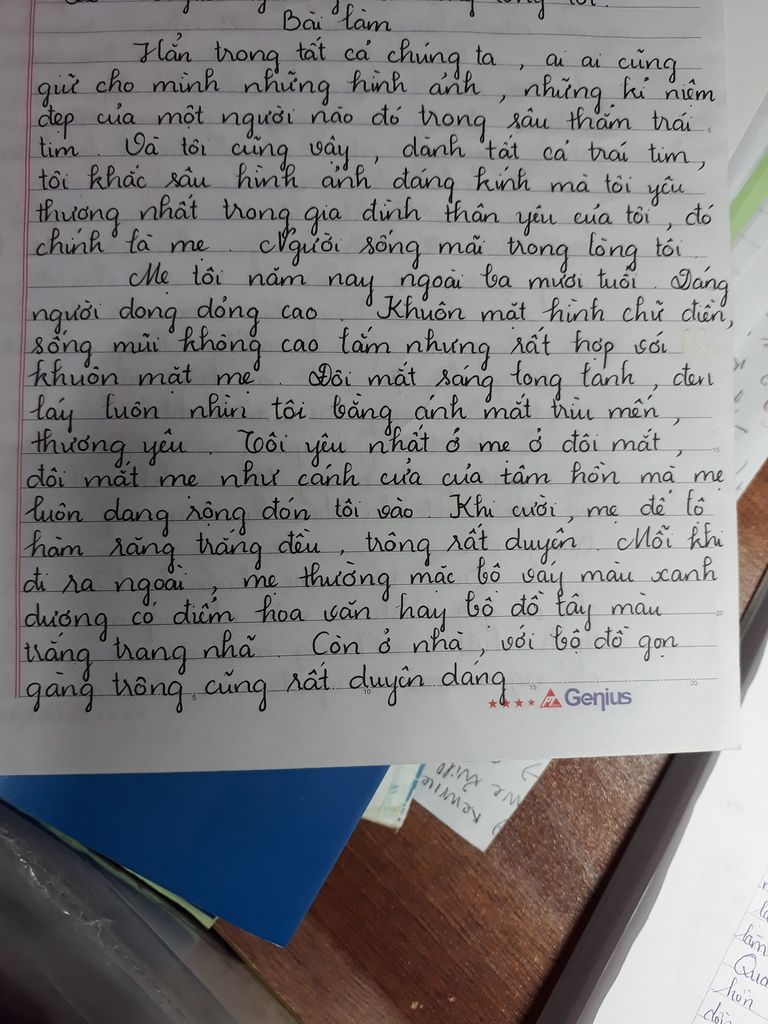 Bài làm
Hẳn trong tất cả chúng ta, ai ai cũng
giữ cho mình những hình ảnh, những kỉ niệm
đẹp của một người nào đó trong sâu thẳm trái
tim. Và tôi cũng vậy, dành tất cả trái tim,
tôi khắc sâu hình ảnh đáng kính mà tôi yêu
thương nhất trong gia đình thân yêu của tôi, đó
chính là mẹ. Người sống mãi trong lòng tôi.
Mẹ tôi năm nay ngoài ba mươi tuổi. Dáng
người dong dỏng cao. Khuôn mặt hình chữ điền,
sống mũi không cao lắm nhưng rất hợp với
khuôn mặt mẹ. Đôi mắt sáng long lanh, đen
láy luôn nhìn tôi bằng ánh mắt trìu mến,
thương yêu. Tôi yêu nhất ở mẹ ở đôi mắt,
đôi mắt mẹ như cánh cửa của tâm hồn mà mẹ
luôn dang rộng đón tôi vào. Khi cười, mẹ để lộ
hàm răng trắng đều, trông rất duyên. Mỗi khi
đi ra ngoài, mẹ thường mặc bộ váy màu xanh
dương có điểm hoa văn hay bộ đồ tây màu
trắng trang nhã. Còn ở nhà, với bộ đồ gọn
gàng trông cũng rất duyên dáng
Genius